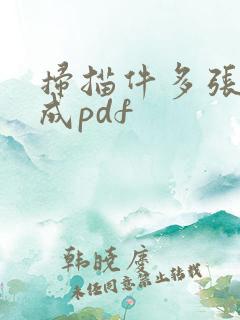 掃描件多張
成pdf
韩晓度
未经同意禁止转载